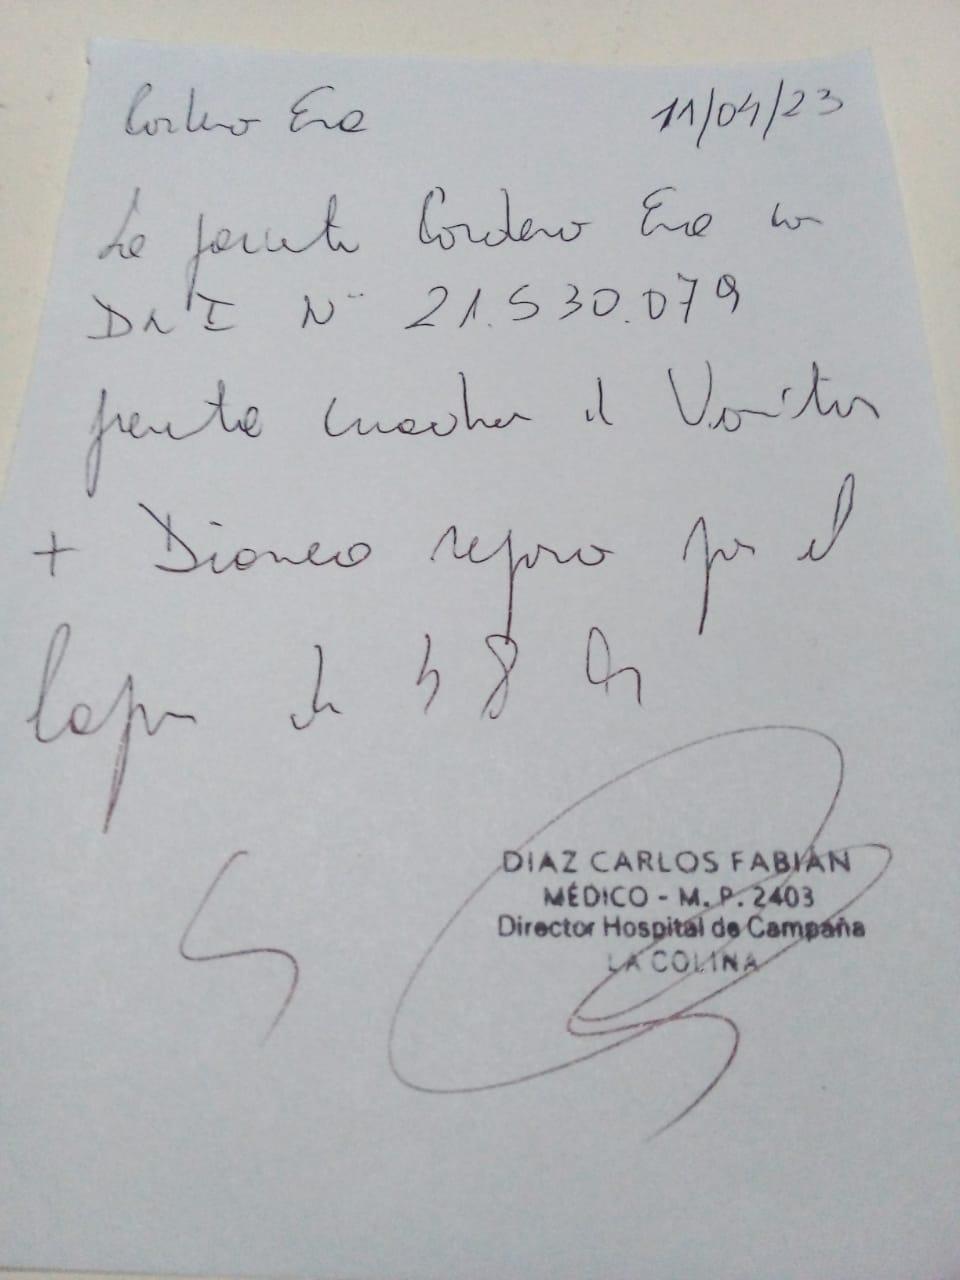 Cordero Eva 11/04/23
La paciente Cordero Eva con
DNI Nº 21.530.079
presenta cuadro de Vómitos
+ Diarrea reposo por el
lapso de 48 hs
DIAZ CARLOS FABIÁN
MÉDICO - M. P. 2403
Director Hospital de Campaña
LA COLINA